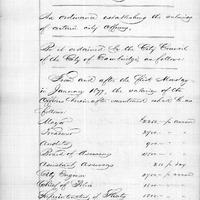 An ordinance establishing the salaries
of certain city officers.
Be it ordained by the City Council
of the City of Cambridge, as follows:
From and after the first Monday
in January 1877, the salaries of the
officers herein after mentioned shall be as
follows:
Mayor per annum
Treasurer
Auditor
Board of Assessors
Assistant Assessors per day
City Engineer per annum
Chief of Police
Superintendent of Streets